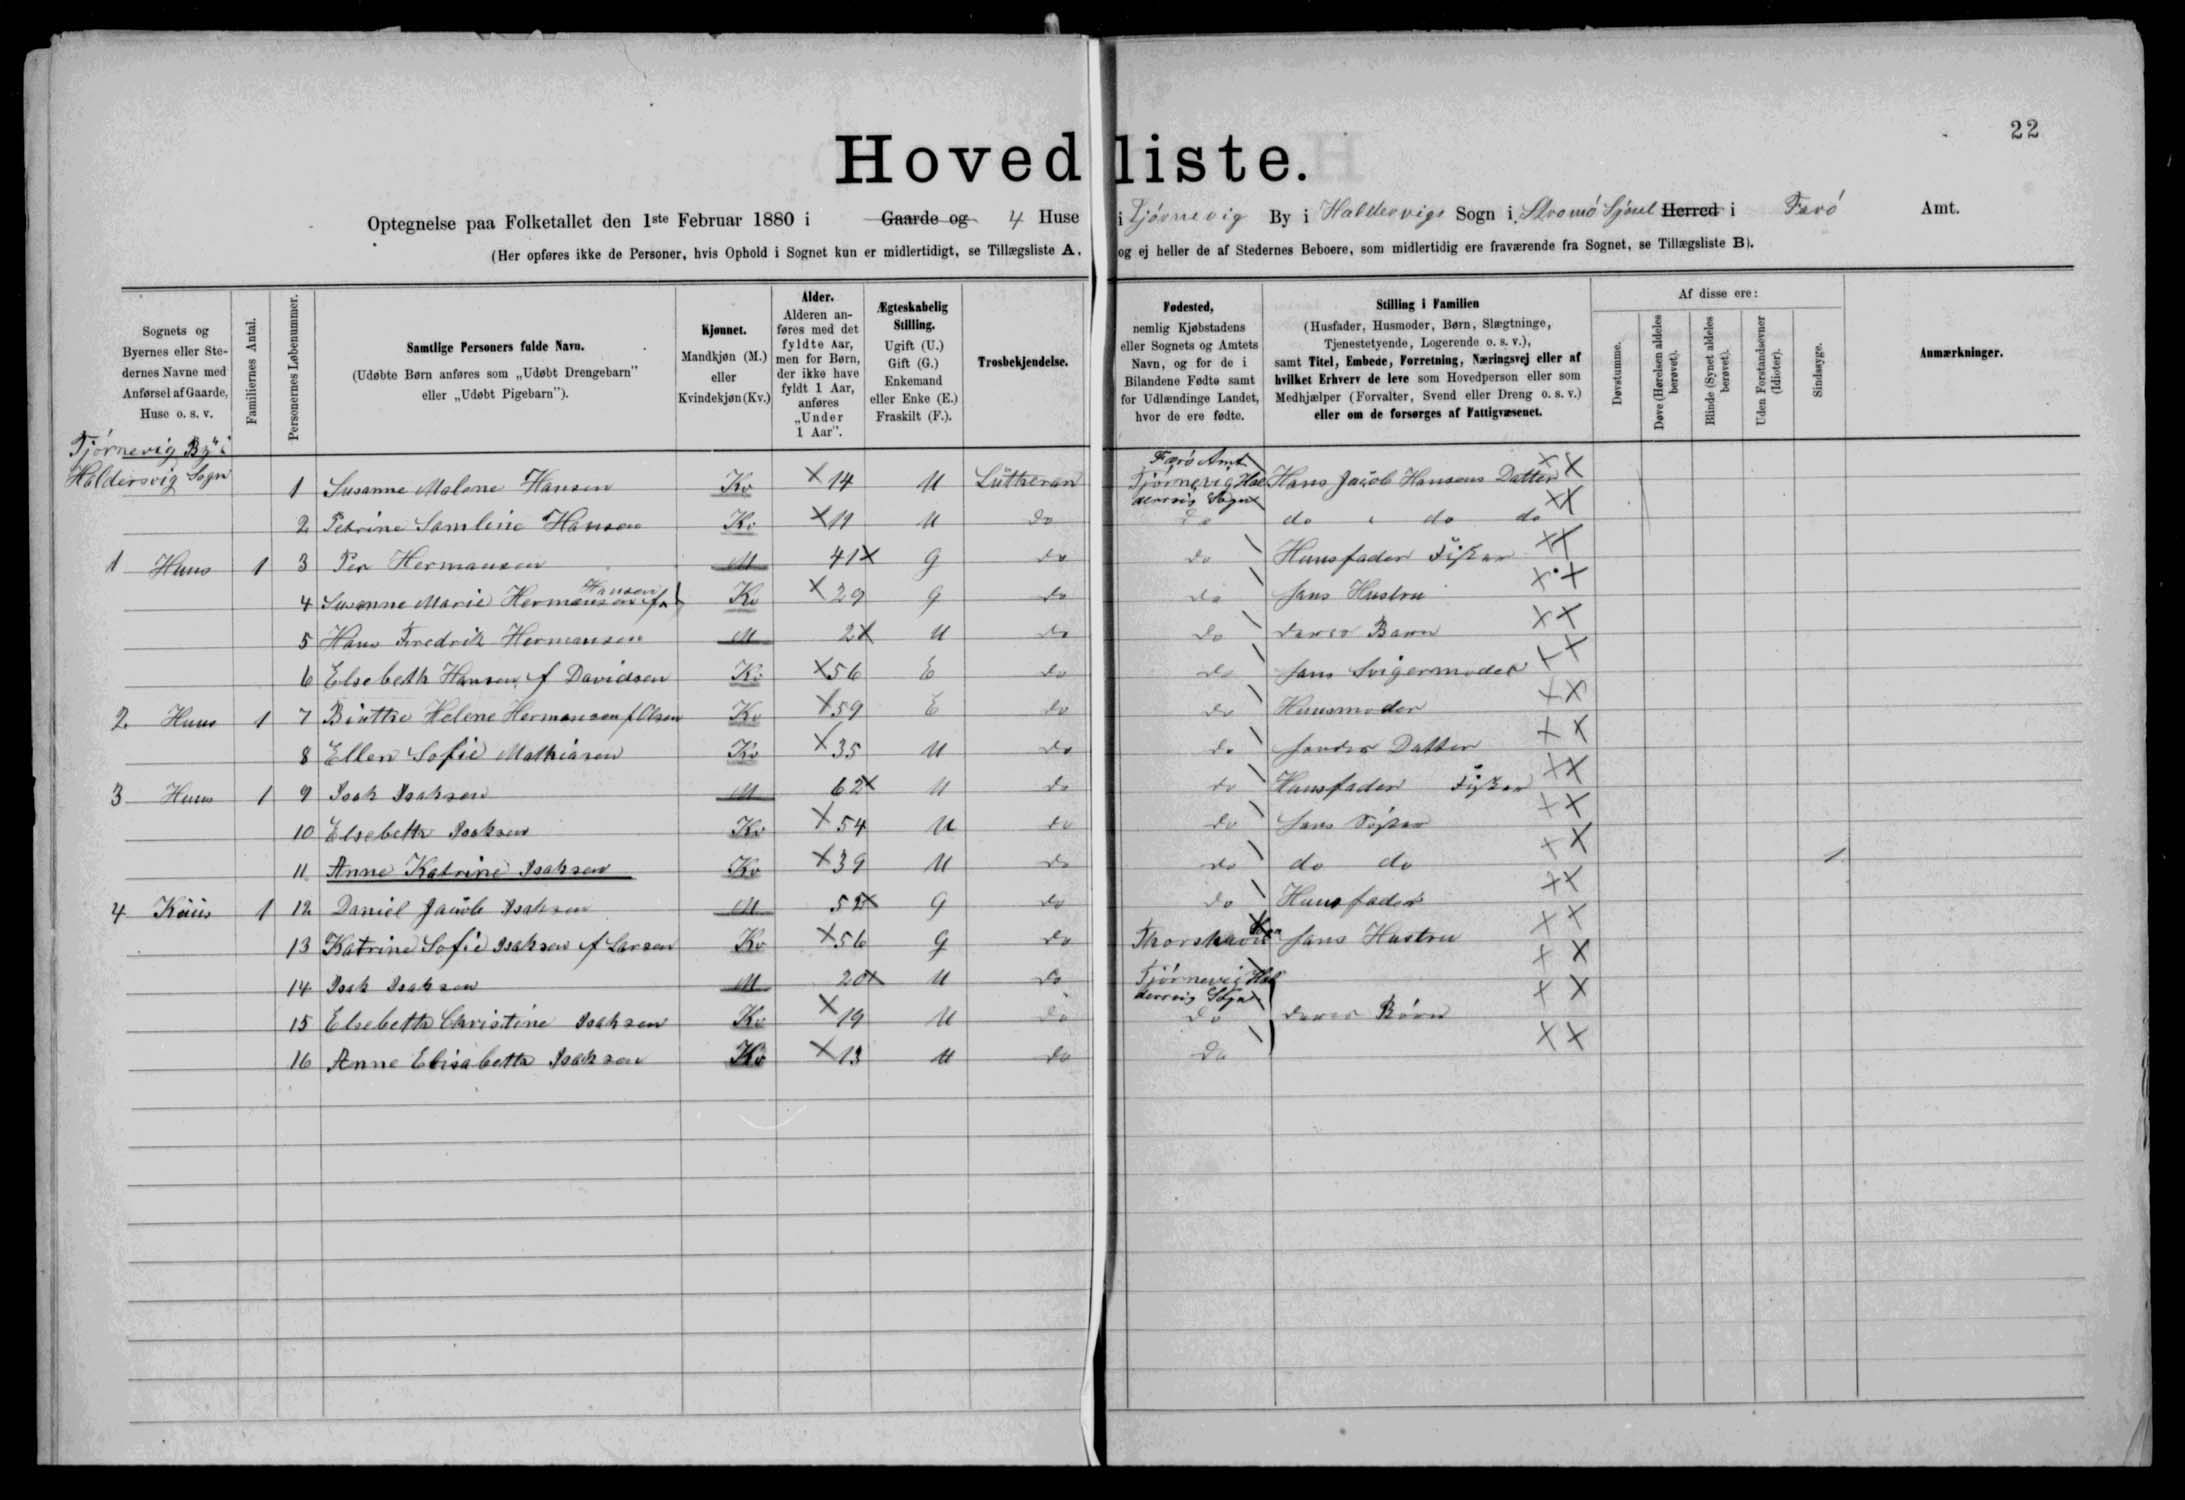 22
Hovedliste.
Optegnelse paa Folketallet den 1ste Februar 1880 i Gaarde og 4 Huse i Tjørnevig By i Haldersvigs Sogn i Strømø Syssel Herred i Farö Amt.
(Her opføres ikke de Personer, hvis Ophold i Sognet kun er midlertidigt, se Tillægsliste A, og ej heller de af Stedernes Beboere, som midlertidig ere fraværende fra Sognet, se Tillægsliste B).
Sognets og Byernes eller Stedernes Navne med Anførsel af Gaarde, Huse o. s. v.
Familiernes Antal.
Personernes Løbenummer.
Samtlige Personers fulde Navn.
(Udøbte Børn anføres som „Udøbt Drengebarn" eller „Udøbt Pigebarn").
Kjønnet.
Mandkjøn (M.) eller Kvindekjøn (Kv.)
Alder.
Alderen anføres med det fyldte Aar, men for Børn, der ikke have fyldt 1 Aar, anføres „Under 1 Aar".
Ægteskabelig Stilling.
Ugift (U.) Gift (G.) Enkemand eller Enke, (E.) Fraskilt (F.).
Trosbekjendelse.
Fødested,
nemlig Kjøbstadens eller Sognets og Amtets Navn, og for de i Bilandene Fødte samt for Udlændinge Landet, hvor de ere fødte.
Stilling i Familien
(Husfader, Husmoder, Børn, Slægtninge, Tjenestetyende, Logerende o. s. v.),
samt Titel, Embede, Forretning, Næringsvej eller af hvilket Erhverv de leve som Hovedperson eller som Medhjælper (Forvalter, Svend eller Dreng o. s. v.) eller om de forsørges af Fattigvæsenet.
Af disse ere:
Døvstumme.
Døve (Hørelsen aldeles berøvet).
Blinde (Synet aldeles berøvet).
Uden Forstandsevner (Idioter).
Sindssyge.
Anmærkninger.
Tjørnevig By i
Haldersvig Sogn
Farö Amt
1 Susanne Malene Hansen Kv 14 U Lütheran Tjørnevig Haldersvig Sogn Hans Jacob Hansens Datter
2 Petrine Samline Hansen Kv 11 U do do do do do
1 Huus 1 3 Per Hermansen M 41 G do do Huusfader Fisker
4 Susanne Marie Hermansen f. Hansen Kv 29 G do do hans Hustru
5 Hans Fredrik Hermansen M 2 U do do deres Barn
6 Elsebeth Hansen f Davidsen Kv 56 E do do hans Svigermoder
2 Huus 1 7 Birthe Helene Hermansen f Olsen Kv 59 E do do Huusmoder
8 Ellen Sofie Mathiasen Kv 35 U do do hendes Datter
3 Huus 1 9 Isak Isaksen M 62 U do do Huusfader Fisker
10 Elsebeth Isaksen Kv 54 U do do hans Søster
11 Anne Katrine Isaksen Kv 39 U do do do do 1
4 Huus 1 12 Daniel Jacob Isaksen M 52 G do do Huusfader
13 Katrine Sofie Isaksen f Larsen Kv 56 G do Thorshavn hans Hustru
14 Isak Isaksen M 20 U do Tjørnevig Haldersvig Sogn
15 Elsebeth Christine Isaksen Kv 19 U do do deres Börn
16 Anne Elisabeth Isaksen Kv 13 U do do